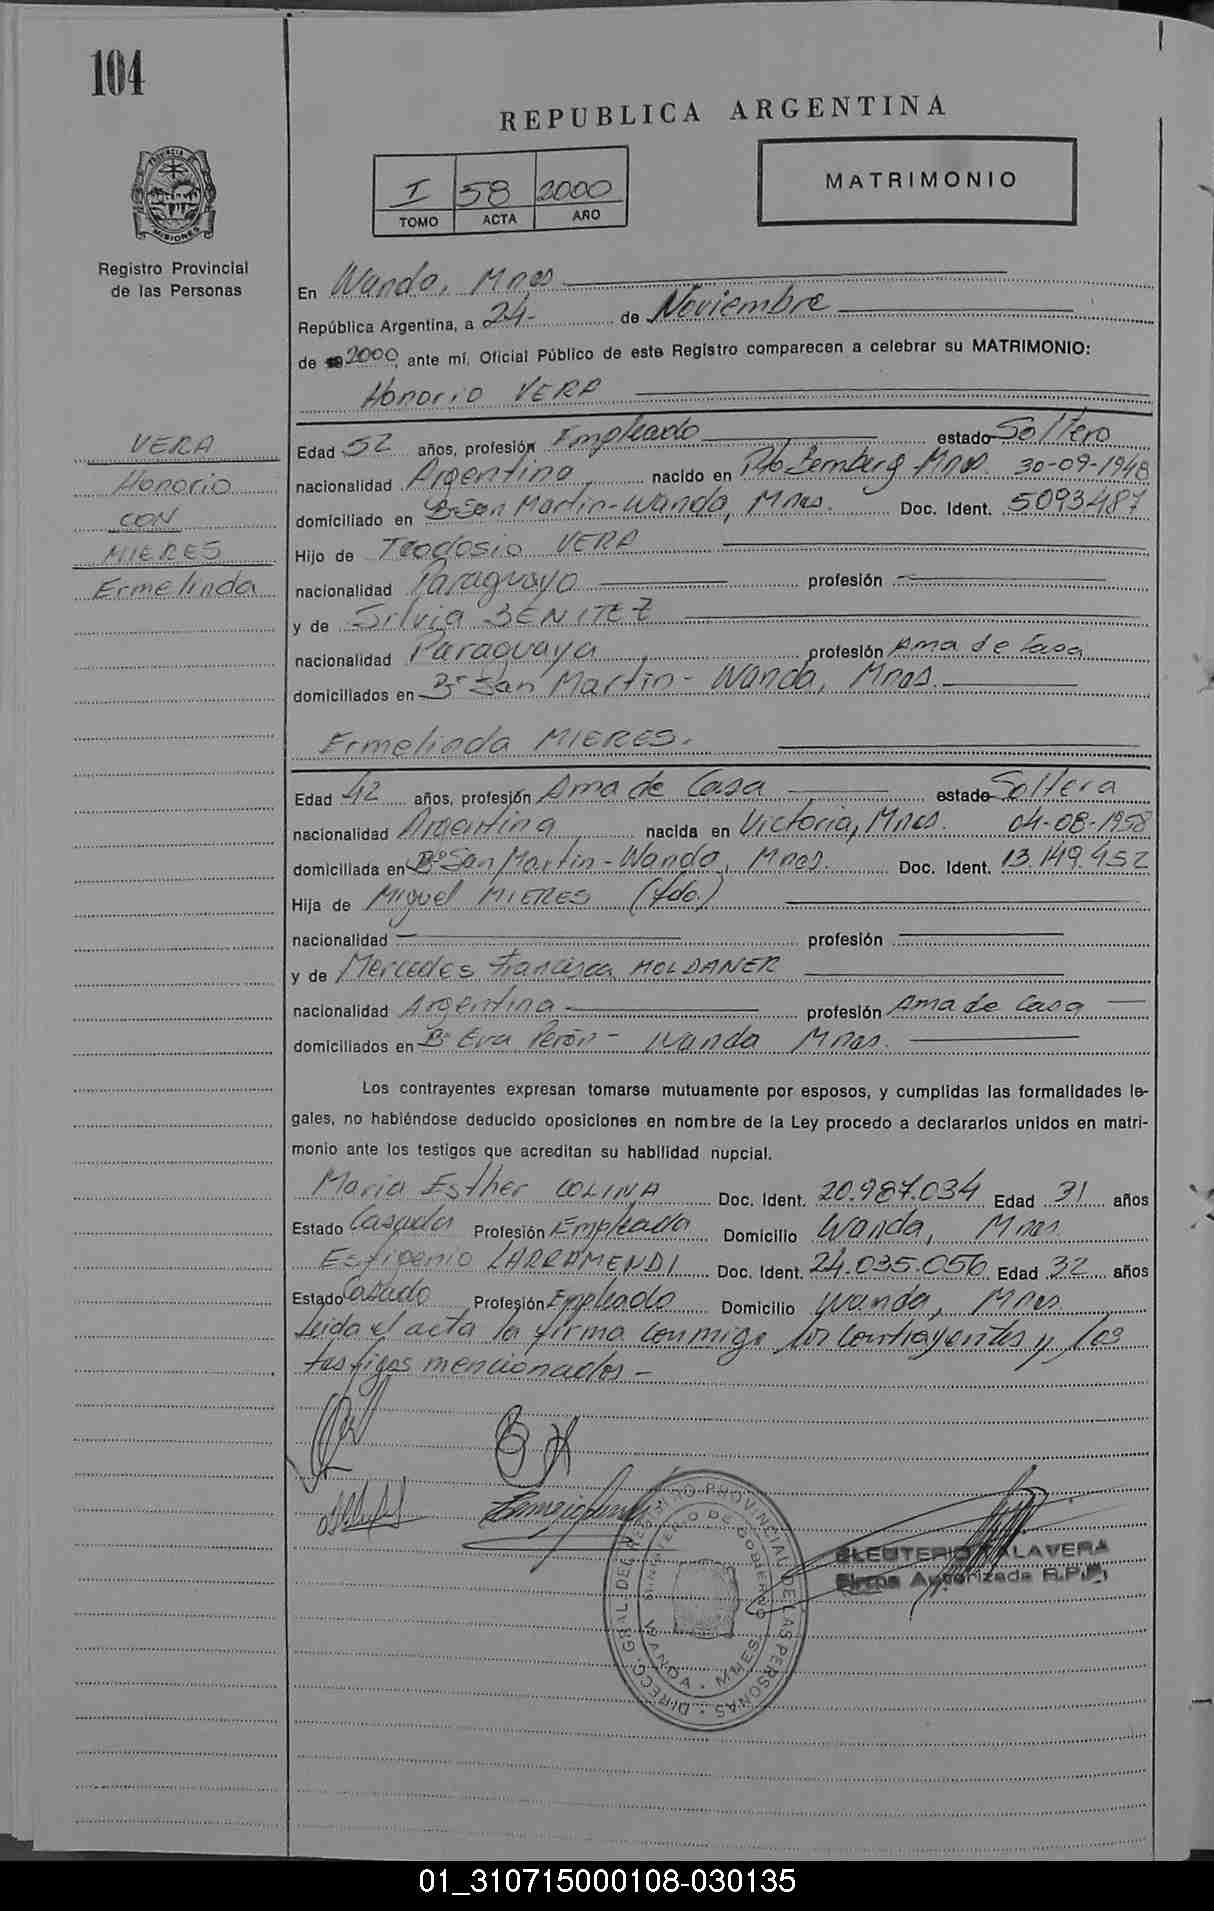 104
REPUBLICA ARGENTINA
I 58 2000
TOMO ACTA AÑO
MATRIMONIO
PROVINCIA DE
MISIONES
Registro Provincial
de las Personas
En Wanda, Mnes
República Argentina, a 24- de Noviembre
de 2000, ante mí, Oficial Público de este Registro comparecen a celebrar su MATRIMONIO:
Honorio VERA
VERA
Honorio
CON
MIERES
Ermelinda
Edad 52 años, profesión Empleado estado Soltero
nacionalidad Argentina nacido en Pto Bemberg Mnes. 30-09-1948
domiciliado en Bº San Martin-Wanda, Mnes. Doc. Ident. 5093487
Hijo de Teodosio VERA
nacionalidad Paraguayo profesión
y de Silvia BENITEZ
nacionalidad Paraguaya profesión Ama de Casa
domiciliados en Bº San Martin- Wanda, Mnes.
Ermelinda MIERES.
Edad 42 años, profesión Ama de Casa estado Soltera
nacionalidad Argentina nacida en Victoria, Mnes. 04-08-1958
domiciliada en Bº San Martin-Wanda, Mnes. Doc. Ident. 13.149.452
Hija de Miguel MIERES (fdo.)
nacionalidad profesión
y de Mercedes Francisca MOLDANER
nacionalidad Argentina profesión Ama de Casa
domiciliados en Bº Eva Perón - Wanda Mnes.
Los contrayentes expresan tomarse mutuamente por esposos, y cumplidas las formalidades le-
gales, no habiéndose deducido oposiciones en nombre de la Ley procedo a declararlos unidos en matri-
monio ante los testigos que acreditan su habilidad nupcial.
Maria Esther COLINA Doc. Ident. 20.987.034 Edad 31 años
Estado Casada Profesión Empleada Domicilio Wanda, Mnes.
Estigenio LARRAMENDI Doc. Ident. 24.035.056 Edad 32 años
Estado Casado Profesión Empleado Domicilio Wanda, Mnes.
Leida el acta la firma conmigo los contrayentes y los
testigos mencionados-
DIRECC. GRAL. DEL REGISTRO PROVINCIAL DE LAS PERSONAS
MINISTERIO DE GOBIERNO
WANDA - MNES
ELEUTERIO TALAVERA
Firma Autorizada R.P.P.
01_310715000108-030135